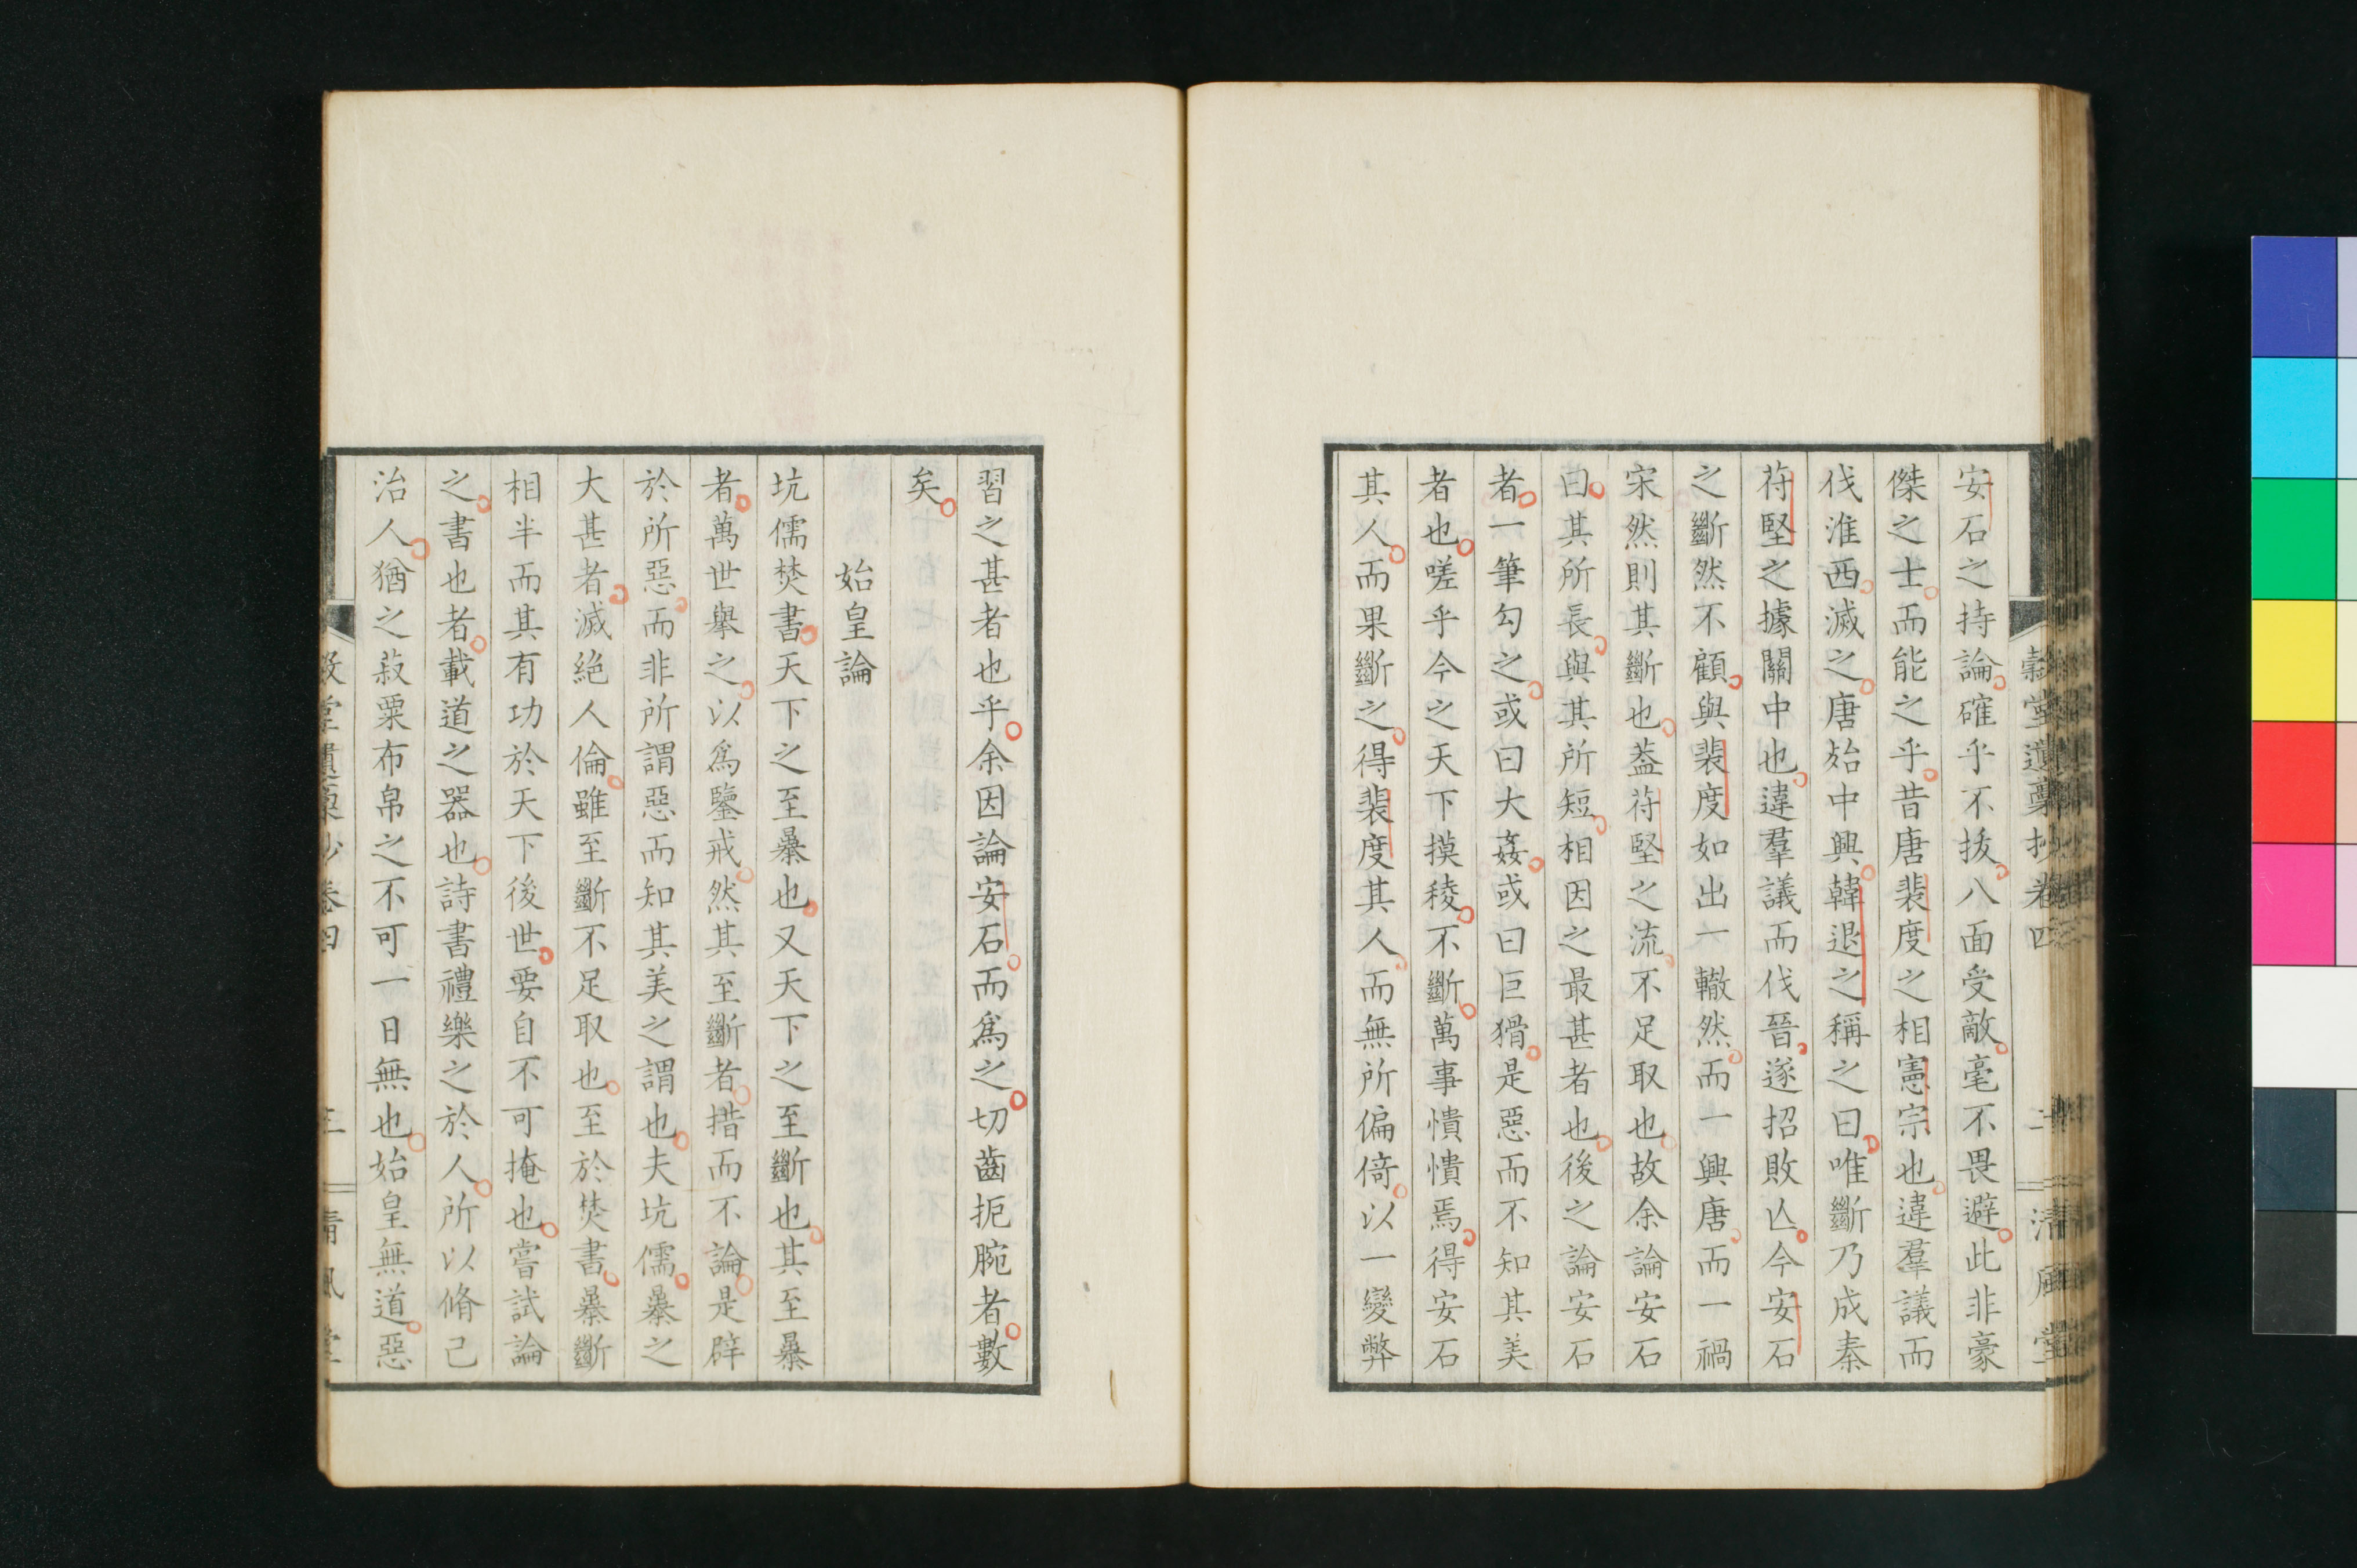 安石之持論確乎不拔八面受敵毫不畏避此非豪
傑之士而能之乎昔唐裴度之相憲宗也違羣議而
伐淮西滅之唐始中興韓退之稱之曰唯斷乃成秦
苻堅之據關中也違羣議而伐晉遂招敗亾今安石
之斷然不顧與裴度如出一轍然而一興唐而一禍
宋然則其斷也葢苻堅之流不足取也故余論安石
曰其所長與其所短相因之最甚者也後之論安石
者一筆勾之或曰大姦或曰巨猾是惡而不知其美
者也嗟乎今之天下摸稜不斷萬事憒憒焉得安石
其人而果斷之得裴度其人而無所偏倚以一變弊
習之甚者也乎余因論安石而爲之切齒扼腕者數
矣
始皇論
坑儒焚書天下之至暴也又天下之至斷也其至暴
者萬世舉之以爲鑒戒然其至斷者措而不論是辟
於所惡而非所謂惡而知其美之謂也夫坑儒暴之
大甚者滅絕人倫雖至斷不足取也至於焚書暴斷
相半而其有功於天下後世要自不可掩也嘗試論
之書也者載道之器也詩書禮樂之於人所以脩己
治人猶之菽粟布帛之不可一日無也始皇無道惡
穀堂遺稾抄卷四
二
清風堂